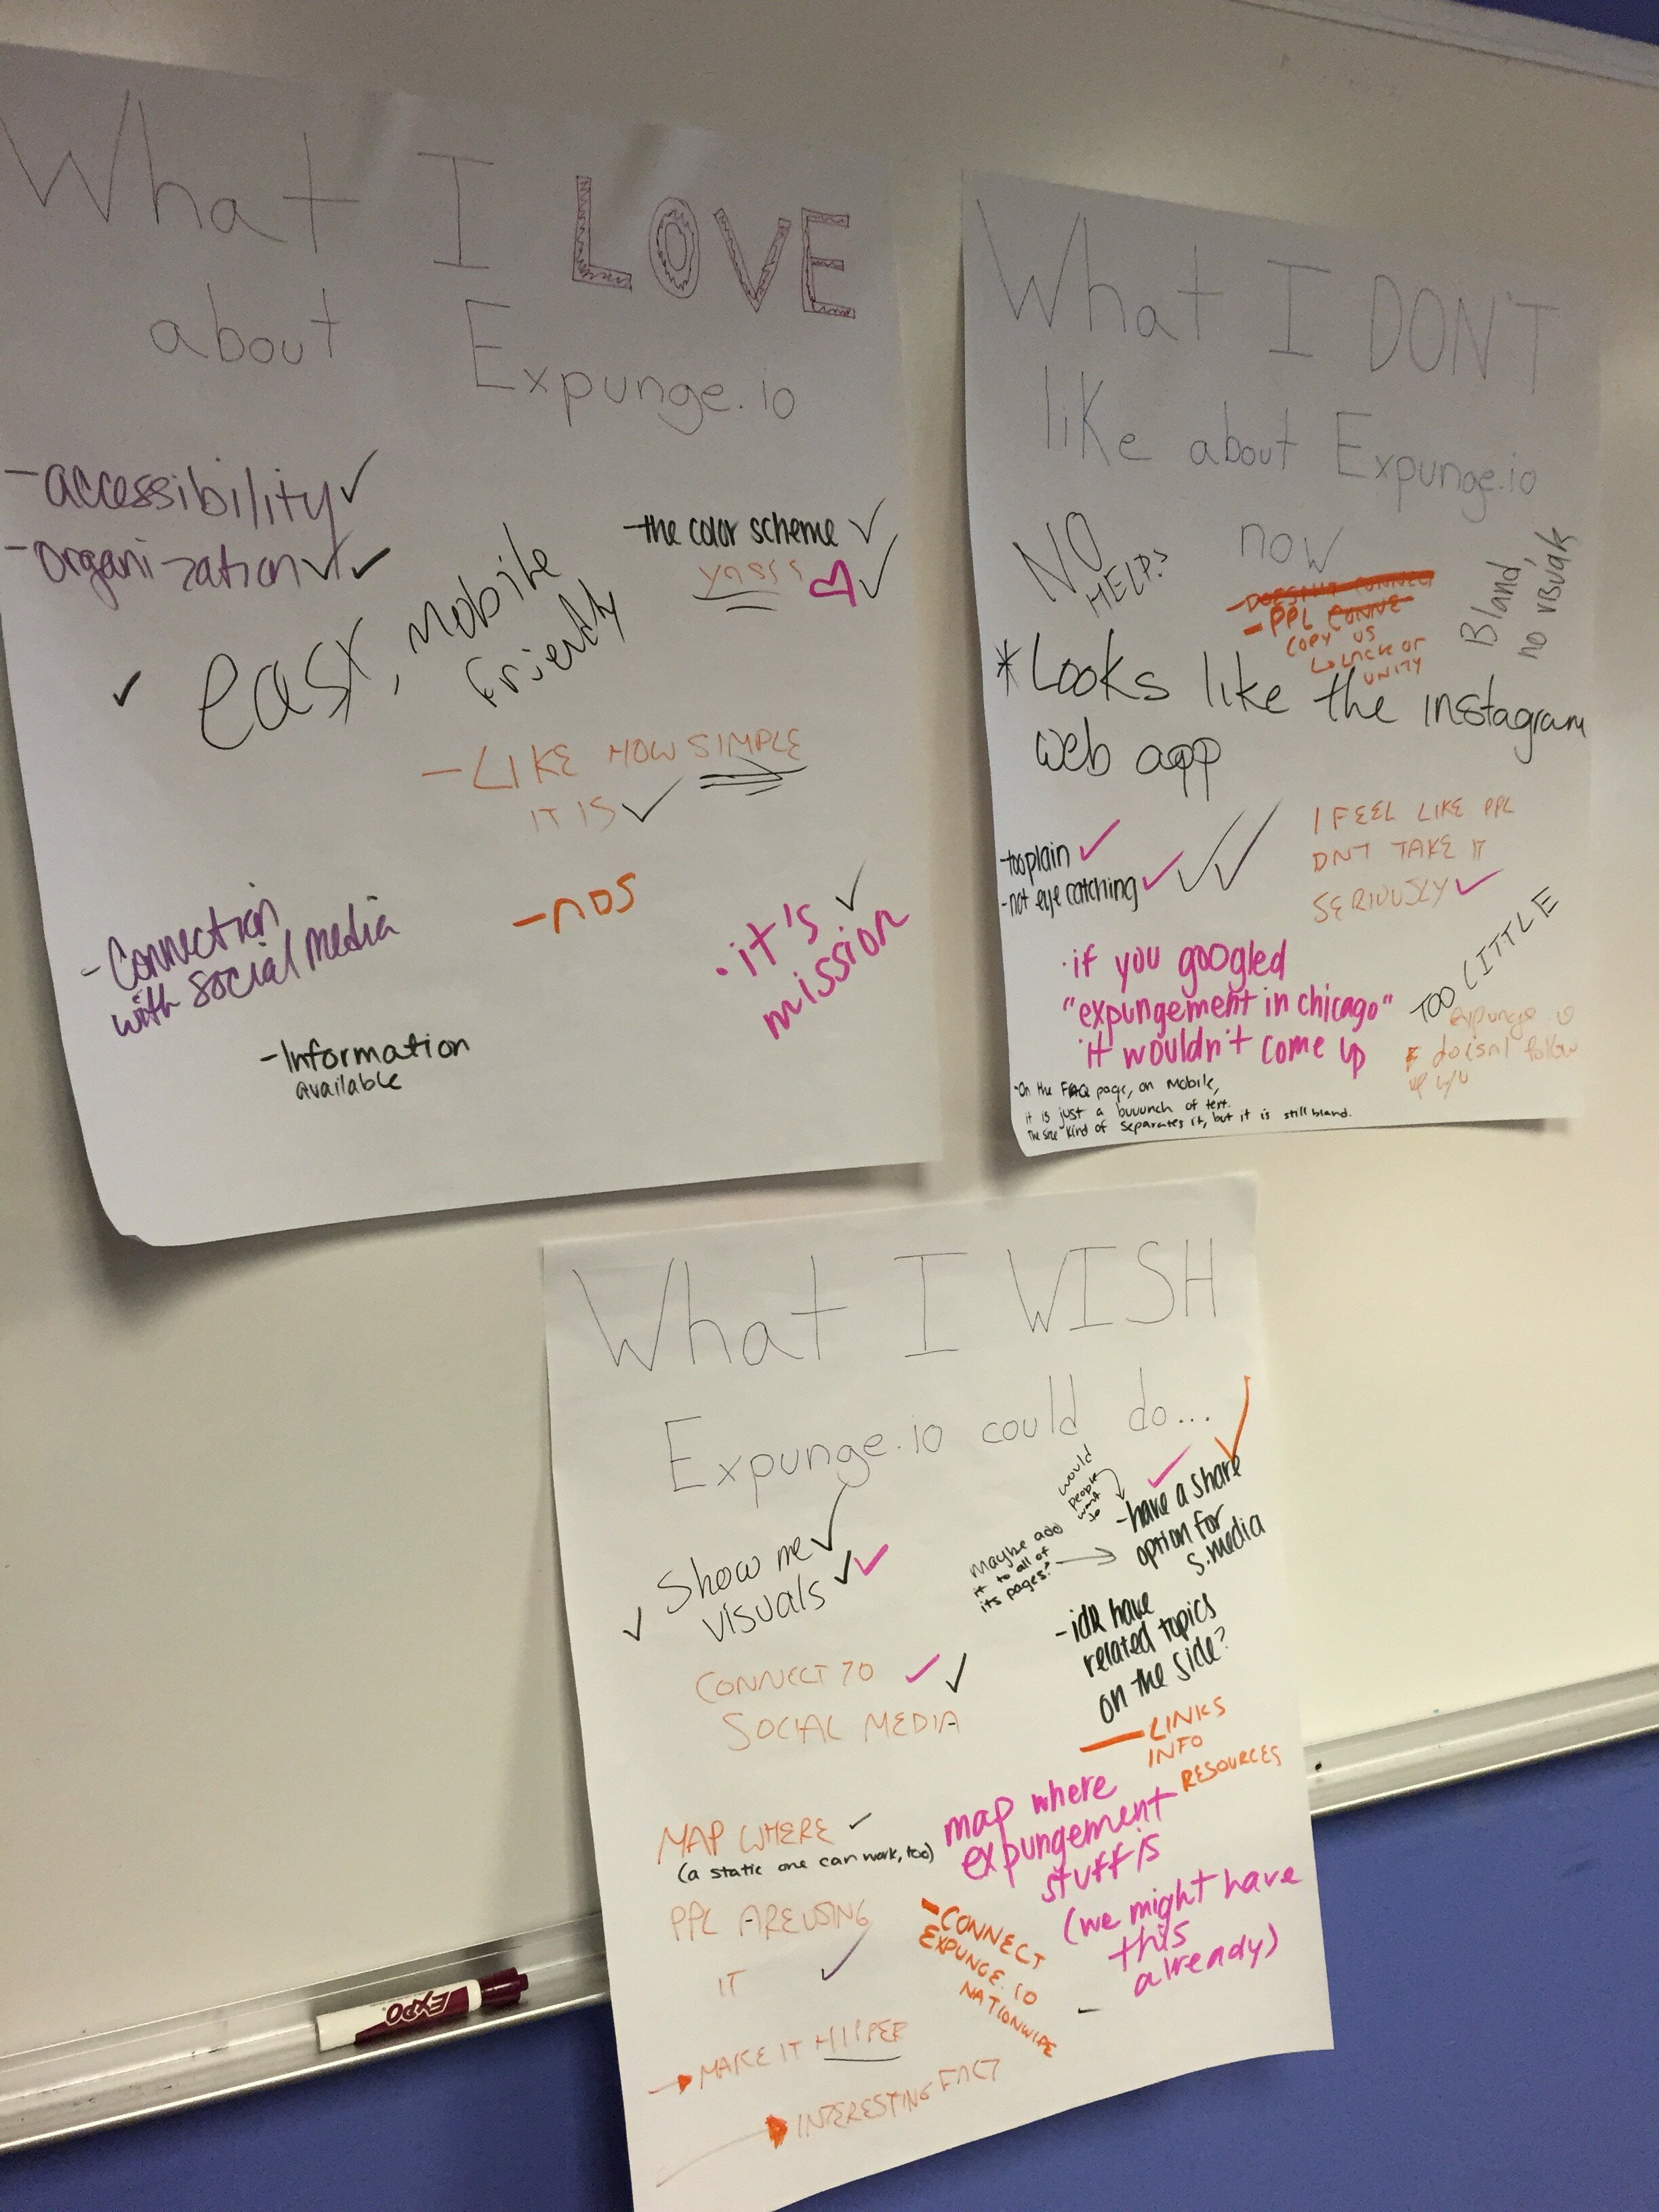 What I LOVE
about Expunge.io
-accessibility
-organization
easy, mobile
friendly
-the color scheme
yasss
-LIKE HOW SIMPLE
IT IS
-Connection
with social media
-nos
·it's
mission
-Information
available
What I DON'T
like about Expunge.io
now
NO
HELP?
-PPL
COPY US
UNITY
Bland,
no visuals
*Looks like the instagram
web app
-too plain
-not eye catching
I FEEL LIKE PPL
DNT TAKE IT
SERIOUSLY
·if you googled
"expungement in chicago"
it wouldn't come up
TOO LITTLE
expunge.io
doesnt follow
up w/u
·On the FAQ page, on mobile,
it is just a buuunch of text.
The size kind of separates it, but it is still bland.
What I WISH
Expunge.io could do...
Show me
visuals
would
people
want
to
-have a share
option for
s.media
maybe add
it to all of
its pages?
-idk have
related topics
on the side?
CONNECT TO
SOCIAL MEDIA
-LINKS
INFO
RESOURCES
MAP WHERE
(a static one can work, too)
PPL ARE USING
IT
map where
expungement
stuff is
(we might have
this
already)
-CONNECT
EXPUNGE.IO
NATIONWIDE
MAKE IT HIPPER
INTERESTING FACT
EXPO